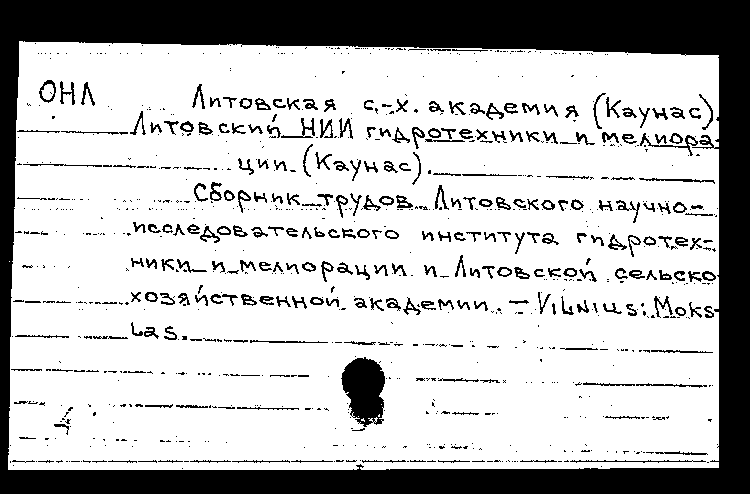 ОНЛ
Литовская с.-х. академия (Каунас).
Литовский НИИ гидротехники и мелиора-
ции (Каунас).
Сборник трудов Литовского научно-
исследовательского института гидротех-
ники и мелиорации и Литовской сельско-
хозяйственной академии. — Vilnius: Moks-
las.